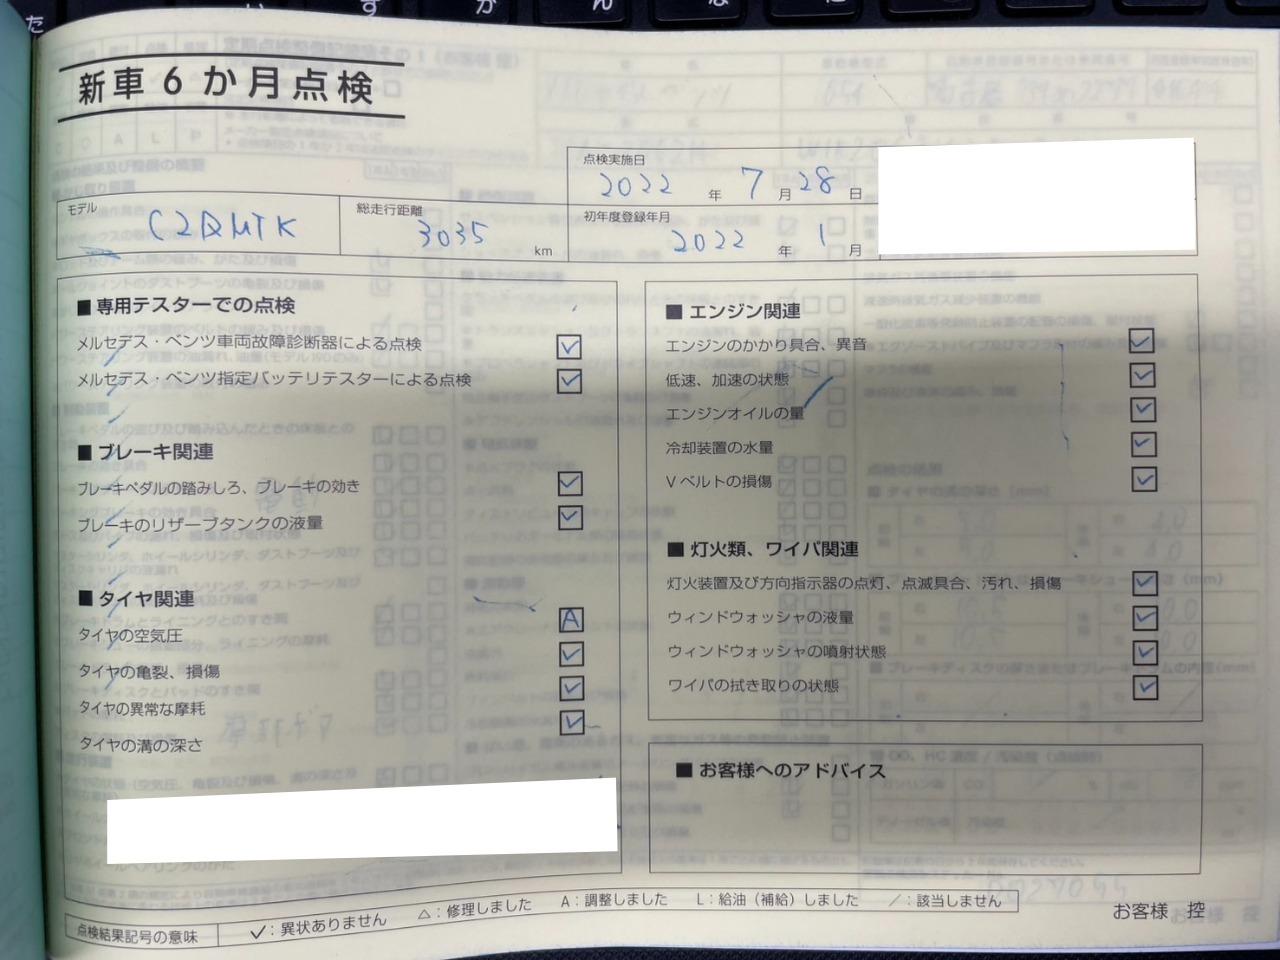 新車6か月点検
点検実施日
2022 年 7 月 28 日
モデル
C220MTK
総走行距離
3035 km
初年度登録年月
2022 年 1 月
■ 専用テスターでの点検
メルセデス・ベンツ車両故障診断器による点検 ✓
メルセデス・ベンツ指定バッテリテスターによる点検 ✓
■ ブレーキ関連
ブレーキペダルの踏みしろ、ブレーキの効き ✓
ブレーキのリザーブタンクの液量 ✓
■ タイヤ関連
タイヤの空気圧 A
タイヤの亀裂、損傷 ✓
タイヤの異常な摩耗 ✓
タイヤの溝の深さ ✓
■ エンジン関連
エンジンのかかり具合、異音 ✓
低速、加速の状態 ✓
エンジンオイルの量 ✓
冷却装置の水量 ✓
Vベルトの損傷 ✓
■ 灯火類、ワイパ関連
灯火装置及び方向指示器の点灯、点滅具合、汚れ、損傷 ✓
ウィンドウォッシャの液量 ✓
ウィンドウォッシャの噴射状態 ✓
ワイパの拭き取りの状態 ✓
■ お客様へのアドバイス
点検結果記号の意味 ✓：異状ありません △：修理しました A：調整しました L：給油（補給）しました ／：該当しません
お客様 控